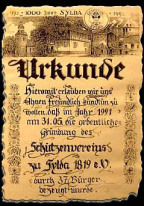 1000 JAHRE SYLDA
Urkunde
Hiermit erlauben wir uns
Ihnen freundlich kundtun zu
wollen, daß im Jahr 1991
am 31.05 die ordentliche
Gründung des
Schützenvereins
zu Sylda 1819 e.V.
durch 37 Bürger
bezeugt wurde.